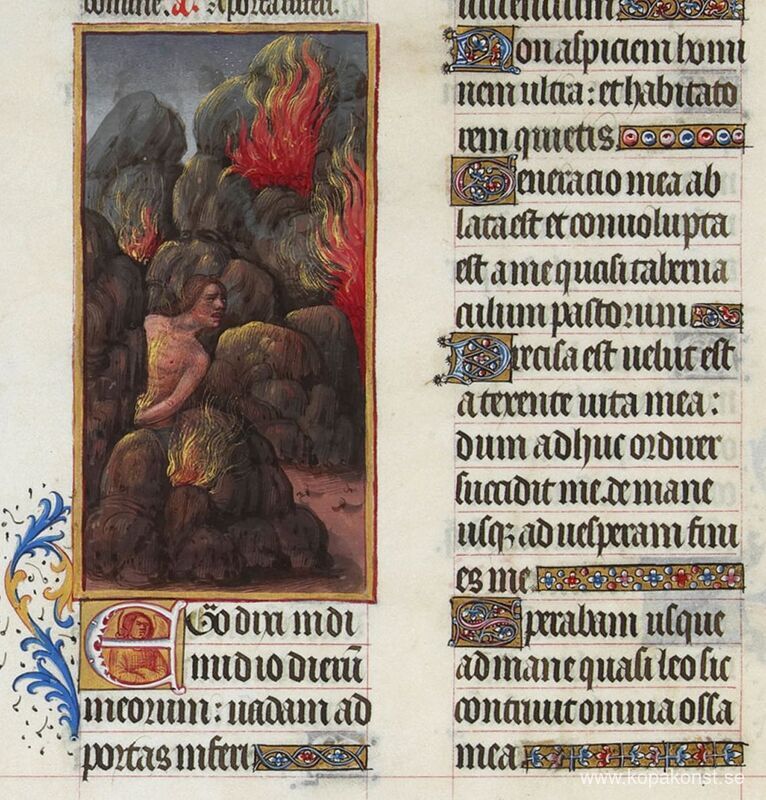 Ego dixi in di
midio dierū
meorum: uadam ad
portas inferi
uiuentium
Non aspiciem homi
nem ultra: et habitato
rem quietis.
Generacio mea ab
lata est et conuolupta
est a me quasi taberna
culum pastorum
Precisa est uelut est
a texente uita mea:
dum adhuc ordirer
succidit me. de mane
usqꝫ ad uesperam fini
es me
Sperabam usque
ad mane quasi leo sic
contriuit omnia ossa
mea
www.kopakonst.se